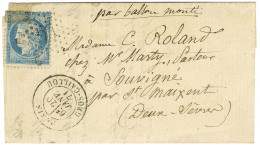 par ballon monté
Madame C. Roland
chez Mr Marty, Pasteur
Souvigné
par St Maixent
(Deux-Sèvres)